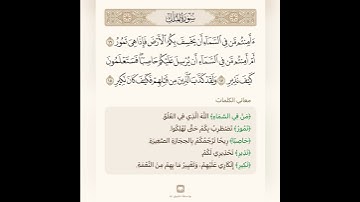 سُورَةُ المُلْكِ
ءَأَمِنتُم مَّن فِي ٱلسَّمَآءِ أَن يَخْسِفَ بِكُمُ ٱلْأَرْضَ فَإِذَا هِيَ تَمُورُ ١٦
أَمْ أَمِنتُم مَّن فِي ٱلسَّمَآءِ أَن يُرْسِلَ عَلَيْكُمْ حَاصِبًا فَسَتَعْلَمُونَ
كَيْفَ نَذِيرِ ١٧ وَلَقَدْ كَذَّبَ ٱلَّذِينَ مِن قَبْلِهِمْ فَكَيْفَ كَانَ نَكِيرِ ١٨
معاني الكلمات
﴿مَّن فِي السَّمَاءِ﴾ اللَّهَ الَّذِي فِي العُلُوِّ.
﴿تَمُورُ﴾ تَضْطَرِبُ بِكُمْ حَتَّى تَهْلِكُوا.
﴿حَاصِبًا﴾ رِيحًا تَرْجُمُكُمْ بِالحِجَارَةِ الصَّغِيرَةِ.
﴿نَذِيرِ﴾ تَحْذِيرِي لَكُمْ.
﴿نَكِيرِ﴾ إِنْكَارِي عَلَيْهِمْ، وَتَغْيِيرُ مَا بِهِمْ مِنَ النِّعْمَةِ.